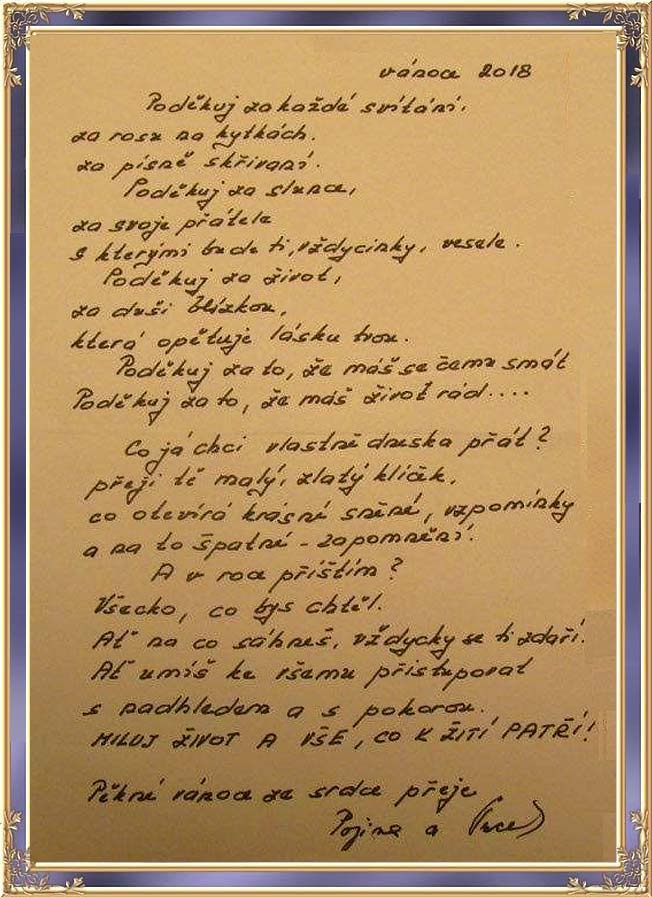 vánoce 2018
Poděkuj za každé svítání,
za rosu na kytkách.
za písně skřivaní.
Poděkuj za slunce,
za svoje přátele
s kterými bude ti, vždycinky, vesele.
Poděkuj za život,
za duši blízkou,
která opětuje lásku tvou.
Poděkuj za to, že máš se čemu smát
Poděkuj za to, že máš život rád....
Co já chci vlastně dneska přát?
přeji tě malý, zlatý klíček,
co otevírá krásné snění, vzpomínky
a na to špatné - zapomnění.
A v roce příštím?
Všecko, co bys chtěl.
Ať na co sáhneš, vždycky se ti zdaří.
Ať umíš ke všemu přistupovat
s nadhledem a s pokorou.
MILUJ ŽIVOT A VŠE, CO K ŽITÍ PATŘÍ!
Pěkné vánoce ze srdce přeje
a